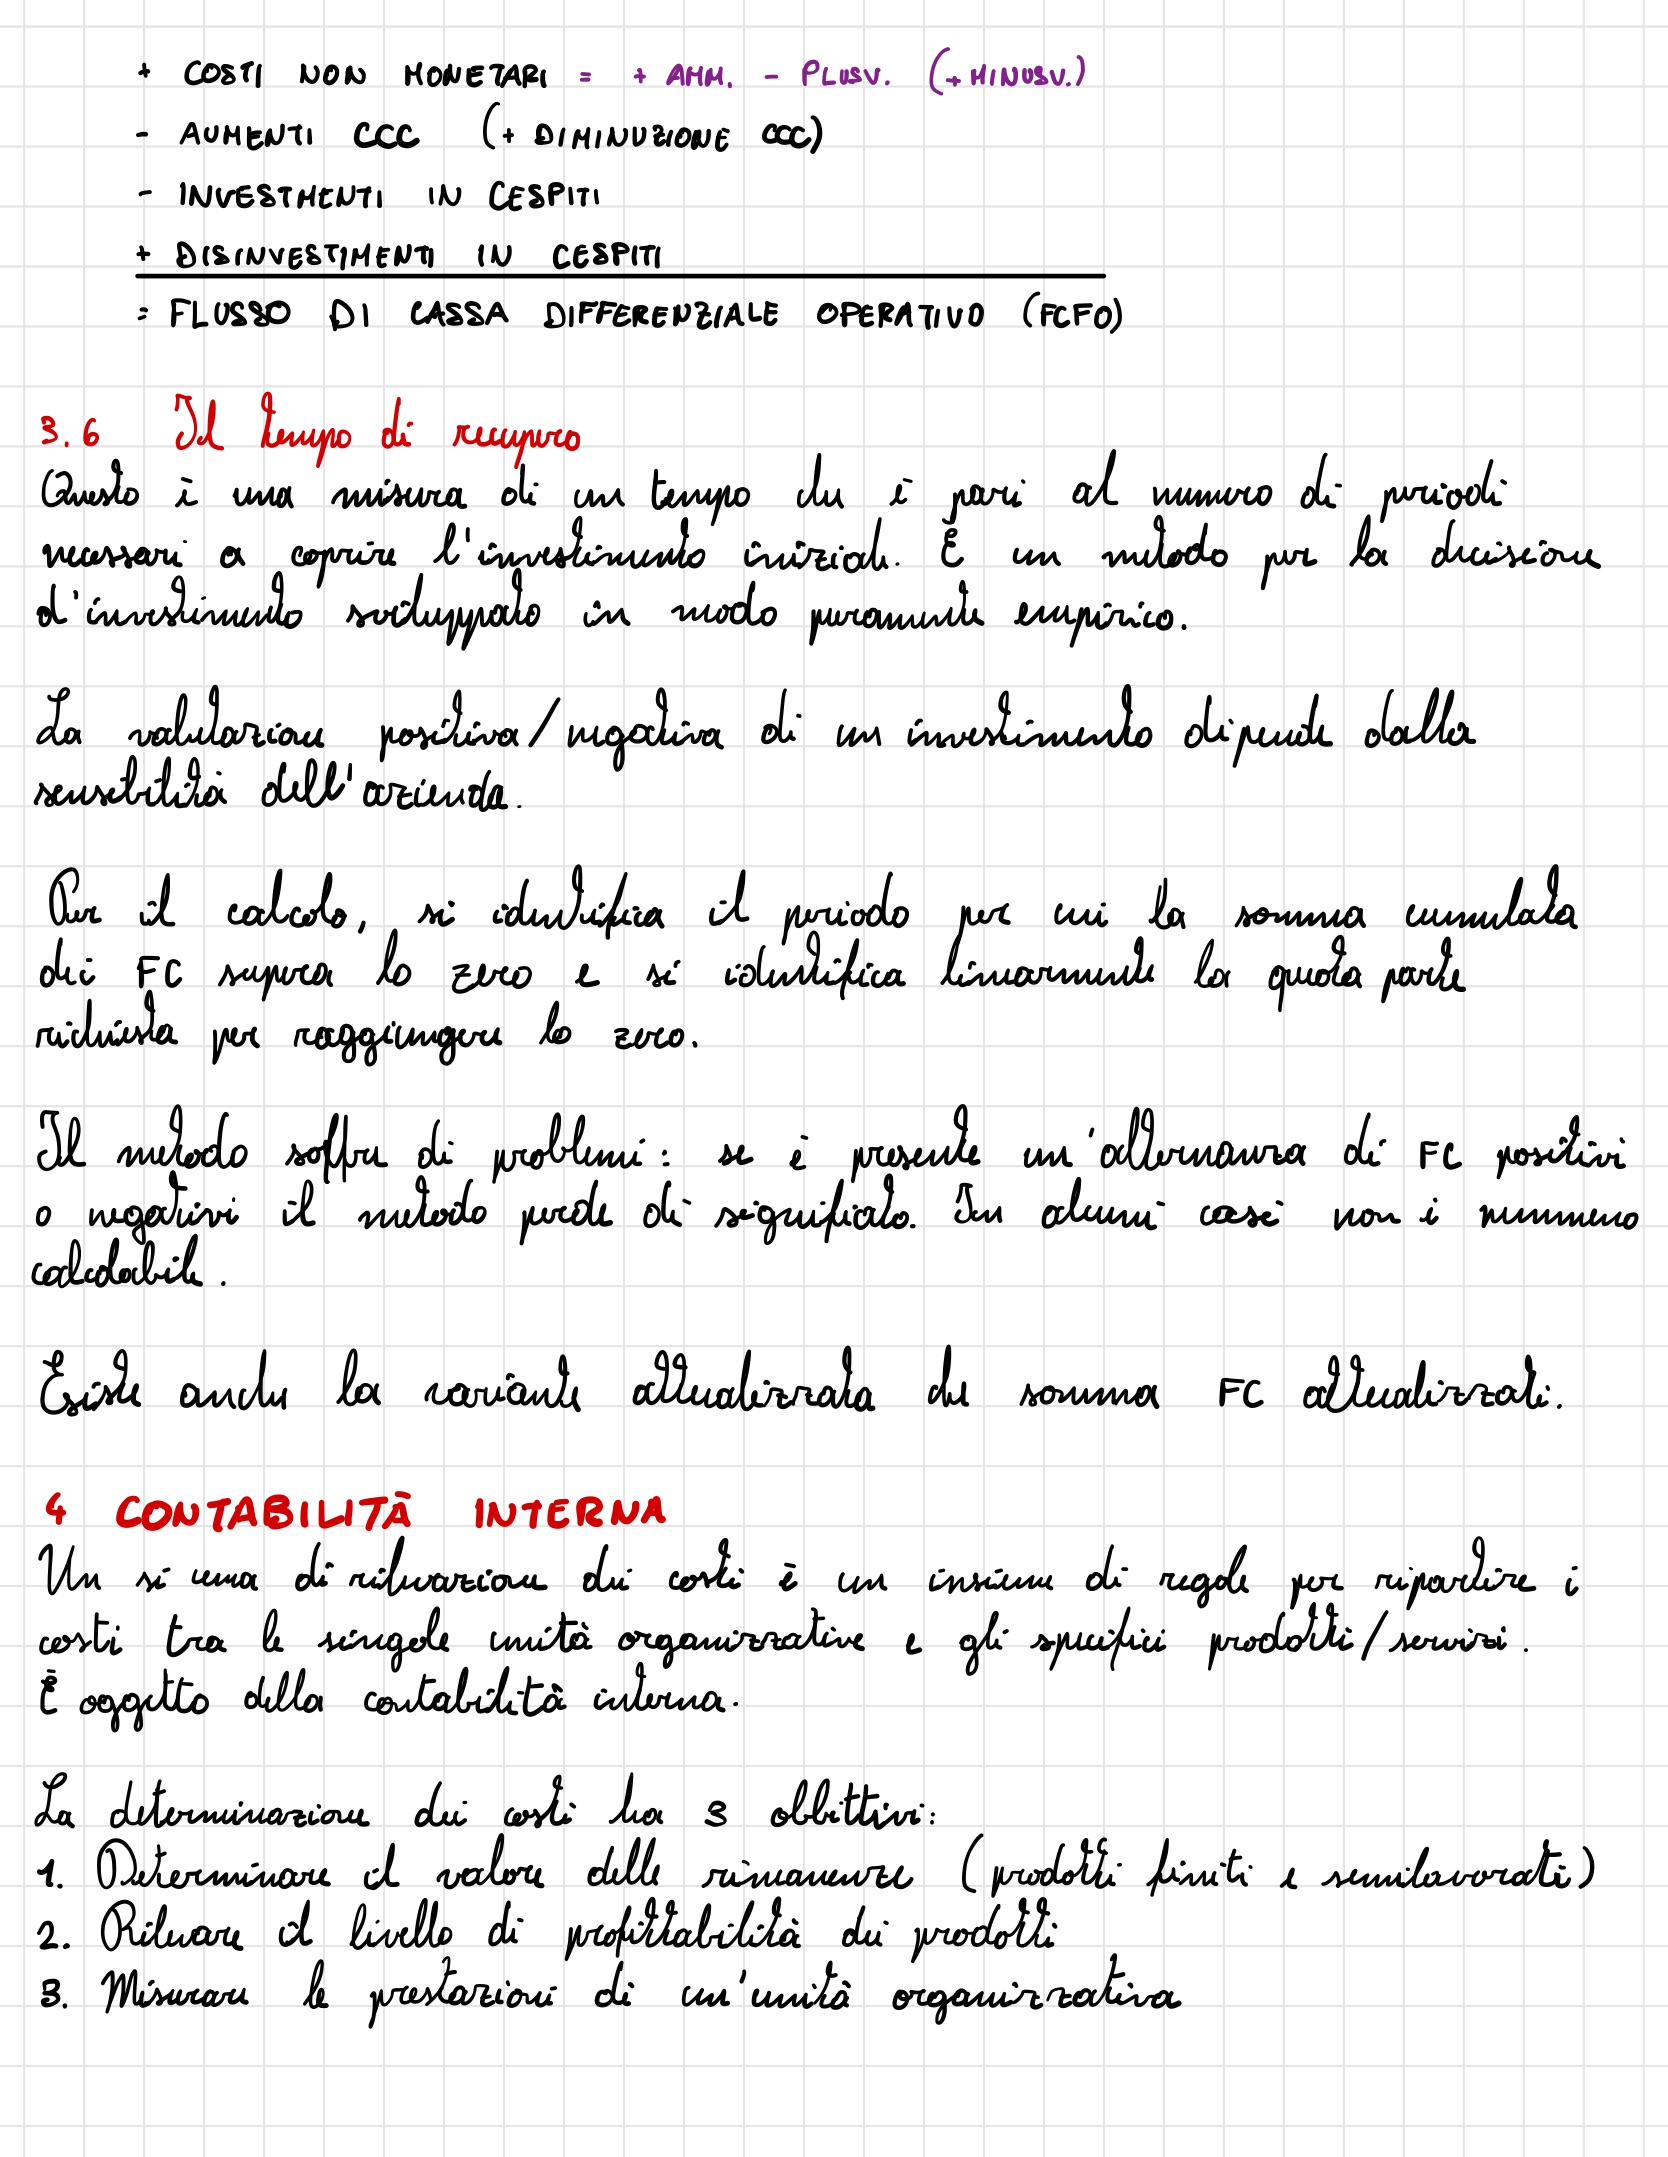 + COSTI NON MONETARI = + AMM. - PLUSV. (+ MINUSV.)
- AUMENTI CCC (+ DIMINUZIONE CCC)
- INVESTMENTI IN CESPITI
+ DISINVESTIMENTI IN CESPITI
= FLUSSO DI CASSA DIFFERENZIALE OPERATIVO (FCFO)
3.6 Il tempo di recupero
Questo è una misura di un tempo che è pari al numero di periodi
necessari a coprire l'investimento iniziale. È un metodo per la decisione
d'investimento sviluppato in modo puramente empirico.
La valutazione positiva/negativa di un investimento dipende dalla
sensibilità dell'azienda.
Per il calcolo, si identifica il periodo per cui la somma cumulata
dei FC supera lo zero e si identifica linearmente la quota parte
richiesta per raggiungere lo zero.
Il metodo soffre di problemi: se è presente un'alternanza di FC positivi
o negativi il metodo perde di significato. In alcuni casi non è nemmeno
calcolabile.
Esiste anche la variante attualizzata che somma FC attualizzati.
4 CONTABILITÀ INTERNA
Un si ema di rilevazione dei costi è un insieme di regole per ripartire i
costi tra le singole unità organizzative e gli specifici prodotti/servizi.
È oggetto della contabilità interna.
La determinazione dei costi ha 3 obbittivi:
1. Determinare il valore delle rimanenze (prodotti finiti e semilavorati)
2. Rilevare il livello di profittabilità dei prodotti
3. Misurare le prestazioni di un'unità organizzativa